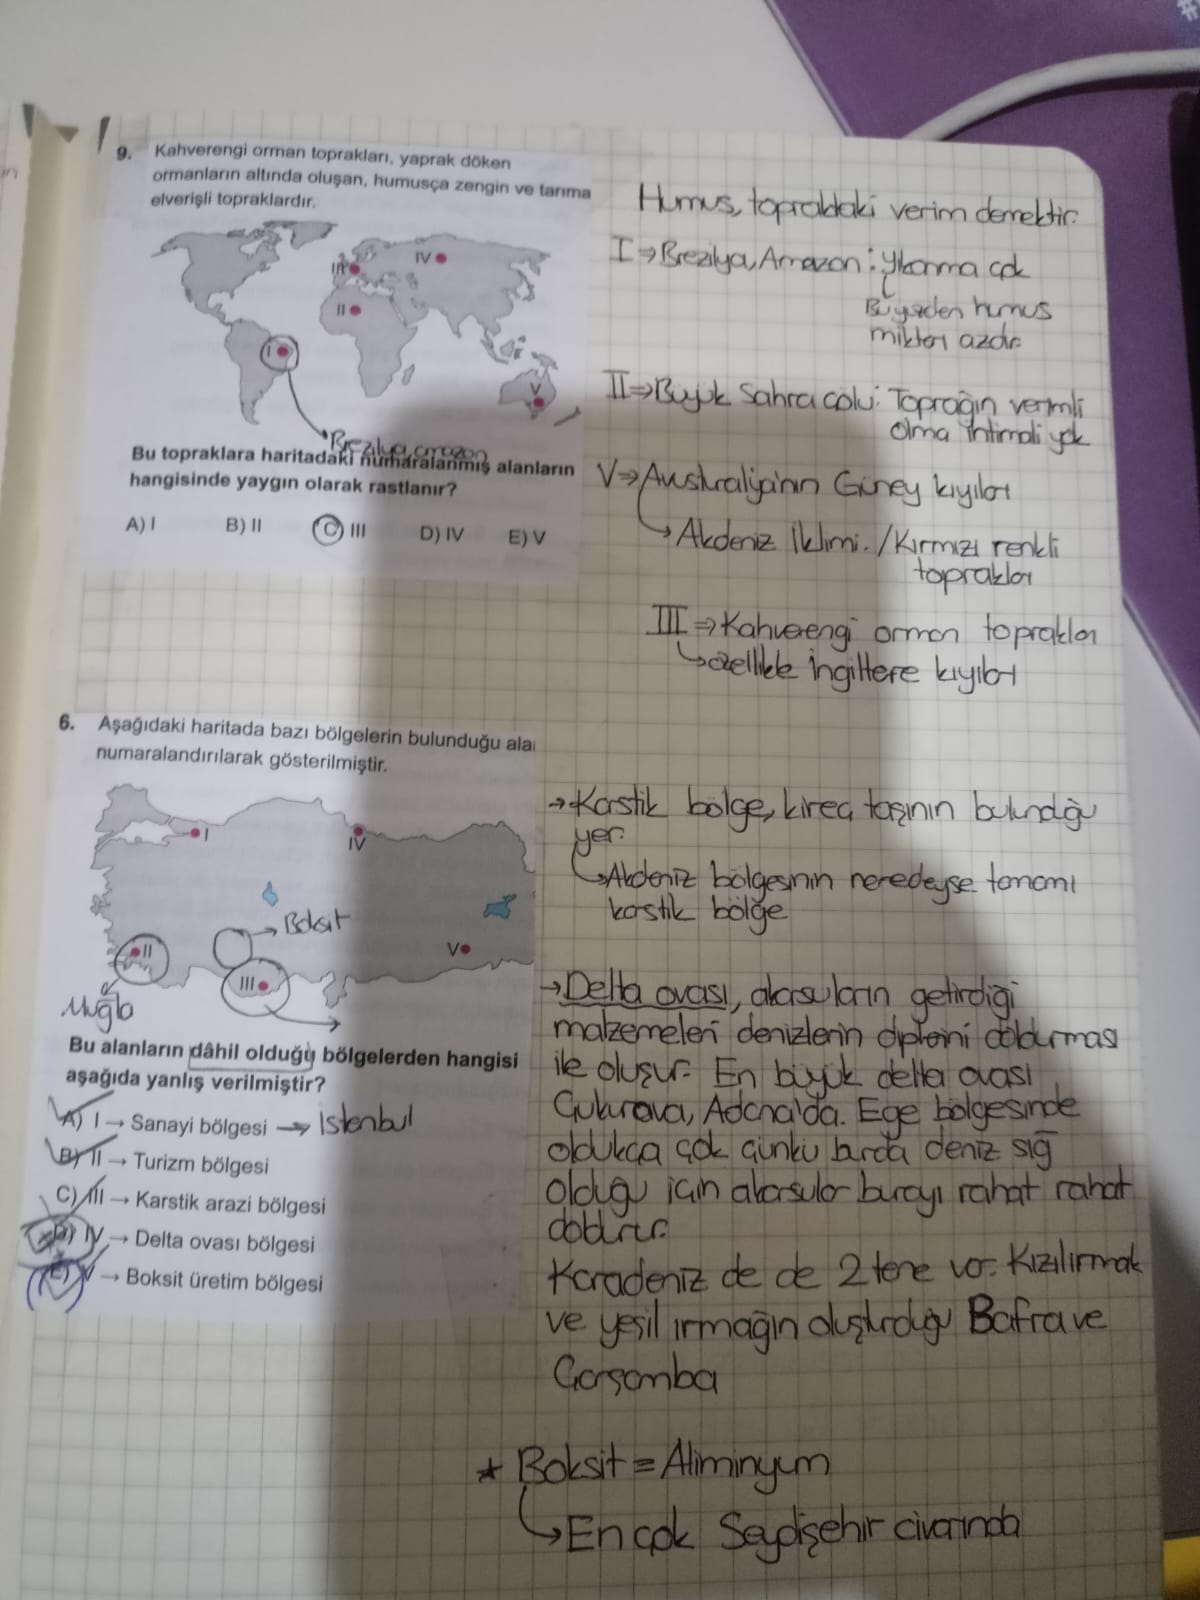 9. Kahverengi orman toprakları, yaprak döken
ormanların altında oluşan, humusça zengin ve tarıma
elverişli topraklardır.
I
II
III
IV
V
Brezilya amazon
Bu topraklara haritadaki numaralanmış alanların
hangisinde yaygın olarak rastlanır?
A) I B) II C) III D) IV E) V
Humus, topraktaki verim demektir.
I ⇒ Brezilya, Amazon : Yıkanma çok
Bu yüzden humus
miktarı azdır
II ⇒ Büyük Sahra çölü: Toprağın verimli
olma ihtimali yok
V ⇒ Avustralya'nın Güney kıyıları
Akdeniz İklimi. / Kırmızı renkli
topraklar
III ⇒ Kahverengi orman toprakları
özellikle İngiltere kıyıları
6. Aşağıdaki haritada bazı bölgelerin bulunduğu ala
numaralandırılarak gösterilmiştir.
I
IV
Boksit
II
V
III
Muğla
Bu alanların dâhil olduğu bölgelerden hangisi
aşağıda yanlış verilmiştir?
A) I → Sanayi bölgesi → İstanbul
B) II → Turizm bölgesi
C) III → Karstik arazi bölgesi
D) IV → Delta ovası bölgesi
E) V → Boksit üretim bölgesi
→ Karstik bölge, kireç taşının bulunduğu
yer.
Akdeniz bölgesinin neredeyse tamamı
karstik bölge
→ Delta ovası, akarsuların getirdiği
malzemeleri denizlerin diplerini doldurması
ile oluşur. En büyük delta ovası
Çukurova, Adana'da. Ege bölgesinde
oldukça çok çünkü burda deniz sığ
olduğu için akarsular burayı rahat rahat
doldurur.
Karadeniz de de 2 tene var. Kızılırmak
ve yeşil ırmağın oluşturduğu Bafra ve
Çarşamba
* Boksit = Aliminyum
En çok Seydişehir civarında